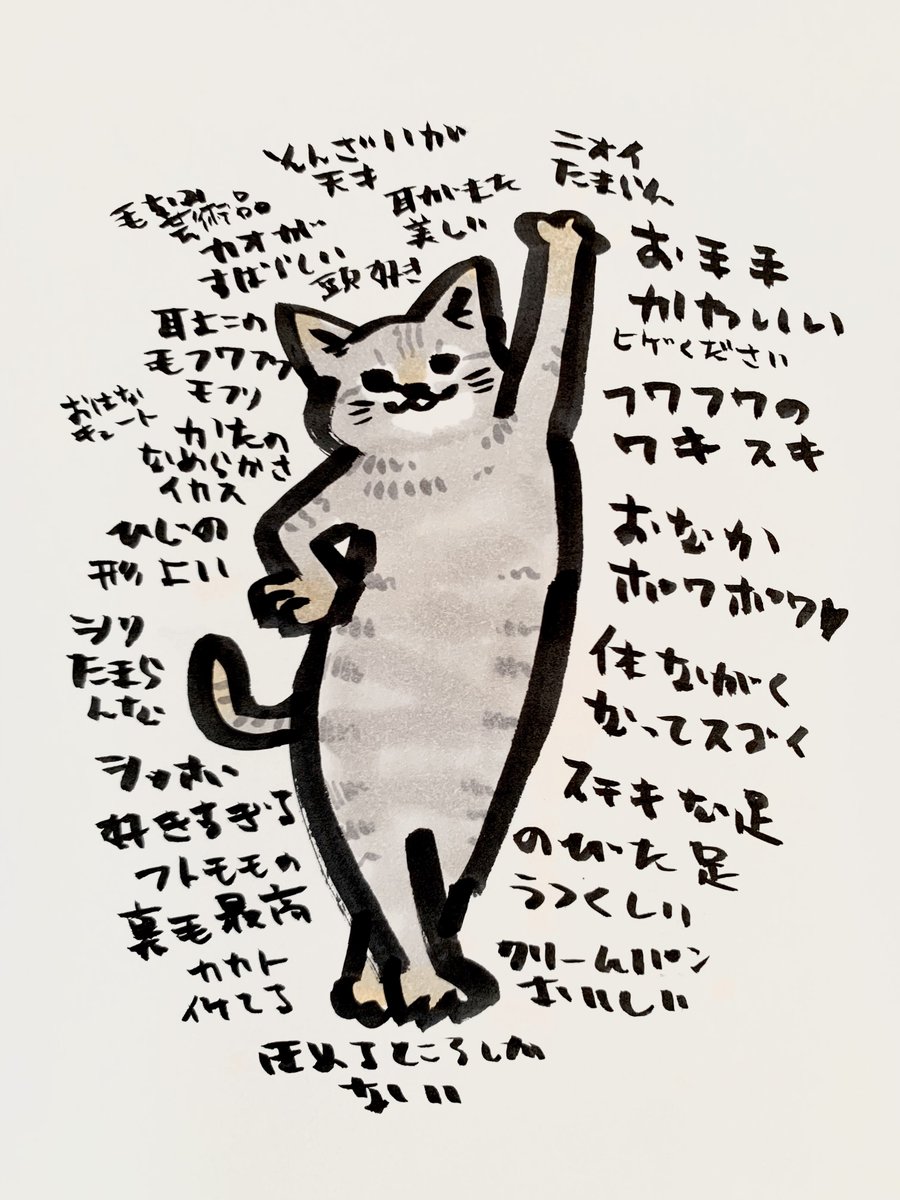 そんざいが
天才
ニオイ
たまらん
毛なみ
芸術品
カオが
すばらしい
耳がまた
美しい
頭好き
お手手
かわいい
ヒゲください
耳ヨコの
モフワフワ
モフリ
フワフワの
ワキ スキ
おはな
キュート
かたの
なめらかさ
イカス
おなか
ポワポワ♥
ひじの
形 よい
シリ
たまら
んな
体ながく
なってスゴく
シッポい
好きすぎる
ステキな足
のびた足
うつくしい
フトモモの
裏毛最高
カカト
イケてる
クリームパン
おいしい
ほめるところしか
ないい